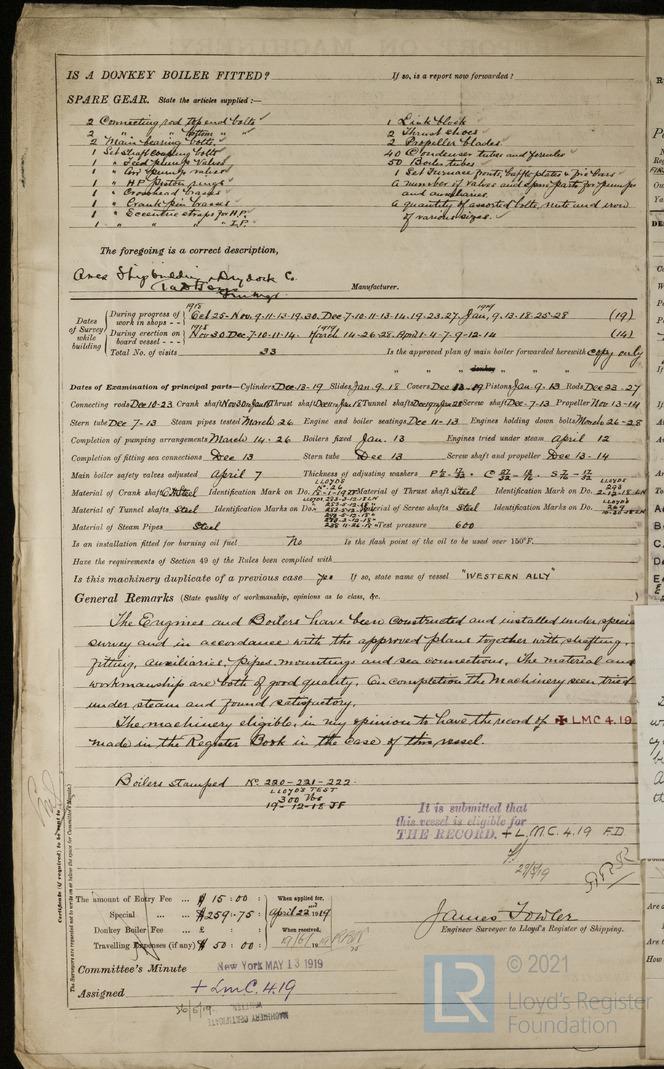 IS A DONKEY BOILER FITTED? If so, is a report now forwarded?
SPARE GEAR. State the articles supplied:—
2 Connecting rod top end bolts
2 " " bottom "
2 Main bearing bolts
1 Set Shaft coupling bolts
1 " Feed pump valves
1 " pump valves
1 " H.P. Piston rings
1 " Crosshead brasses
1 " Crank pin brasses
1 " Eccentric straps for H.P.
1 " " " " I.P.
1 Link block
2 Thrust shoes
2 Propeller blades
40 Condenser tubes and ferrules
50 Boiler tubes
1 Set Furnace fronts, baffle plates & fire bars
A number of valves and spare parts for pumps
and auxiliaries.
A quantity of assorted bolts, nuts and iron
of various sizes.
The foregoing is a correct description,
Ames Shipbuilding & Drydock Co.
Manufacturer.
Dates of Survey while building
During progress of work in shops - - 1918 Oct 25- Nov. 9-11-13-19.30. Dec 7-10-11-13-14.19.23.27. 1919 Jan, 9.13.18.25-28 (19)
During erection on board vessel - - - 1918 Nov 30. Dec 7-10-11-14. 1919 March 14-26-28. April 1-4-7-9-12-14 (14)
Total No. of visits 33 Is the approved plan of main boiler forwarded herewith copy only
" " " donkey " " "
Dates of Examination of principal parts—Cylinders Dec 13-19 Slides Jan. 9. 18 Covers Dec 13-19 Pistons Jan 9. 13 Rods Dec 23-27
Connecting rods Dec 10-23 Crank shaft Nov 30 Jan 18 Thrust shaft Jan 18 Tunnel shafts Dec 19 Jan 28 Screw shaft Dec 7-13 Propeller Nov 13-14
Stern tube Dec 7-13 Steam pipes tested March 26 Engine and boiler seatings Dec 11-13 Engines holding down bolts March 26-28
Completion of pumping arrangements March 14. 26 Boilers fixed Jan. 13 Engines tried under steam April 12
Completion of fitting sea connections Dec 13 Stern tube Dec 13 Screw shaft and propeller Dec 13-14
Main boiler safety valves adjusted April 7 Thickness of adjusting washers
Material of Crank shaft Steel Identification Mark on Do. Material of Thrust shaft Steel Identification Mark on Do.
Material of Tunnel shafts Steel Identification Marks on Do. Material of Screw shafts Steel Identification Marks on Do.
Material of Steam Pipes Steel Test pressure 600
Is an installation fitted for burning oil fuel No Is the flash point of the oil to be used over 150°F.
Have the requirements of Section 49 of the Rules been complied with
Is this machinery duplicate of a previous case yes If so, state name of vessel "WESTERN ALLY"
General Remarks (State quality of workmanship, opinions as to class, &c.
The Engines and Boilers have been constructed and installed under special
survey and in accordance with the approved plans together with shafting,
fitting, auxiliaries, pipes, mountings and sea connections. The material and
workmanship are both of good quality. On completion the Machinery seen tried
under steam and found satisfactory.
The machinery eligible, in my opinion to have the record of ✠ LMC 4.19
made in the Register Book in the case of this vessel.
Boilers stamped No. 220-221-222
LLOYD'S TEST
300 lbs
19-12-18 JF
It is submitted that
this vessel is eligible for
THE RECORD. + L.M.C. 4.19 F.D
Certificate (if required) to be sent to
The Surveyors are requested not to write on or below the space for Committee's Minute.
The amount of Entry Fee ... $ 15 : 00 : When applied for,
Special ... $ 259 : 75 : April 22 1919
Donkey Boiler Fee ... £ : : When received,
Travelling Expenses (if any) $ 50 : 00 :
James Fowler
Engineer Surveyor to Lloyd's Register of Shipping.
Committee's Minute New York MAY 13 1919
Assigned + LMC. 4.19
MACHINERY CERTIFICATE
WRITTEN
© 2021
LR Lloyd's Register
Foundation